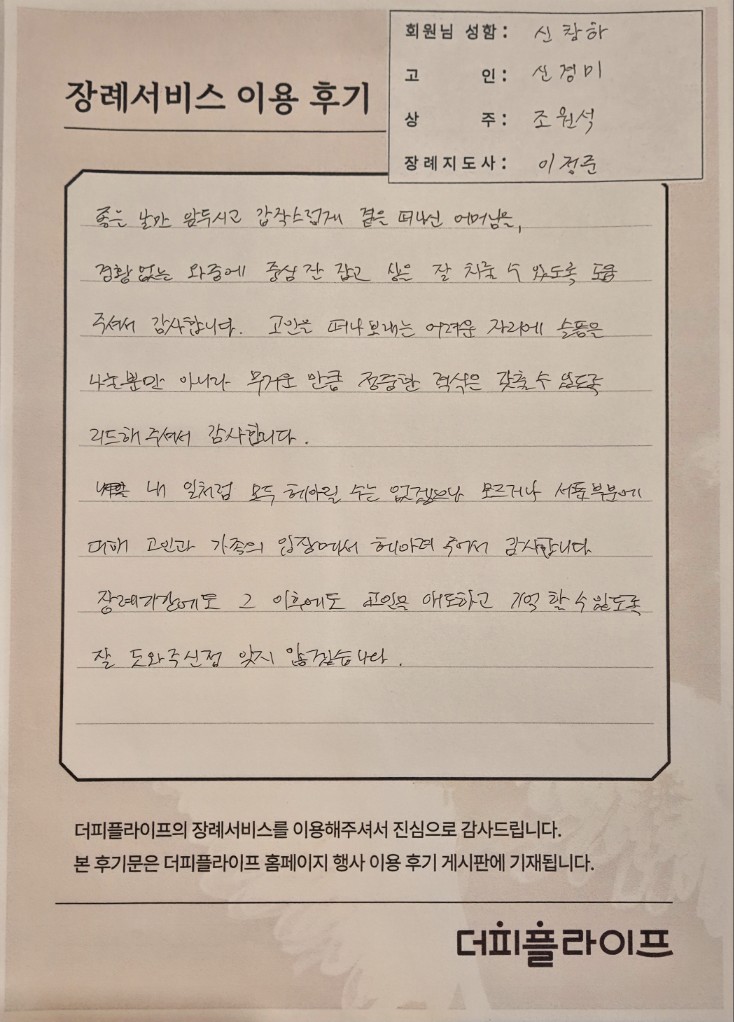 회원님 성함: 신창하
고 인: 신경미
상 주: 조원석
장례지도사: 이정준
장례서비스 이용 후기
좋은 날만 앞두시고 갑작스럽게 곁을 떠나신 어머님을,
경황없는 와중에 중심 잘 잡고 상을 잘 치룰 수 있도록 도움
주셔서 감사합니다. 고인을 떠나보내는 어려운 자리에 슬픔을
나눌뿐만 아니라 무거운 만큼 정중한 격식을 갖출 수 있도록
리드해 주셔서 감사합니다.
내 일처럼 모두 헤아릴 수는 없겠으나 모르거나 서툰부분에
대해 고인과 가족의 입장에서 헤아려 주어서 감사합니다
장례기간에도 그 이후에도 고인을 애도하고 기억 할 수 있도록
잘 도와주신점 잊지 않겠습니다.
더피플라이프의 장례서비스를 이용해주셔서 진심으로 감사드립니다.
본 후기문은 더피플라이프 홈페이지 행사 이용 후기 게시판에 기재됩니다.
더피플라이프